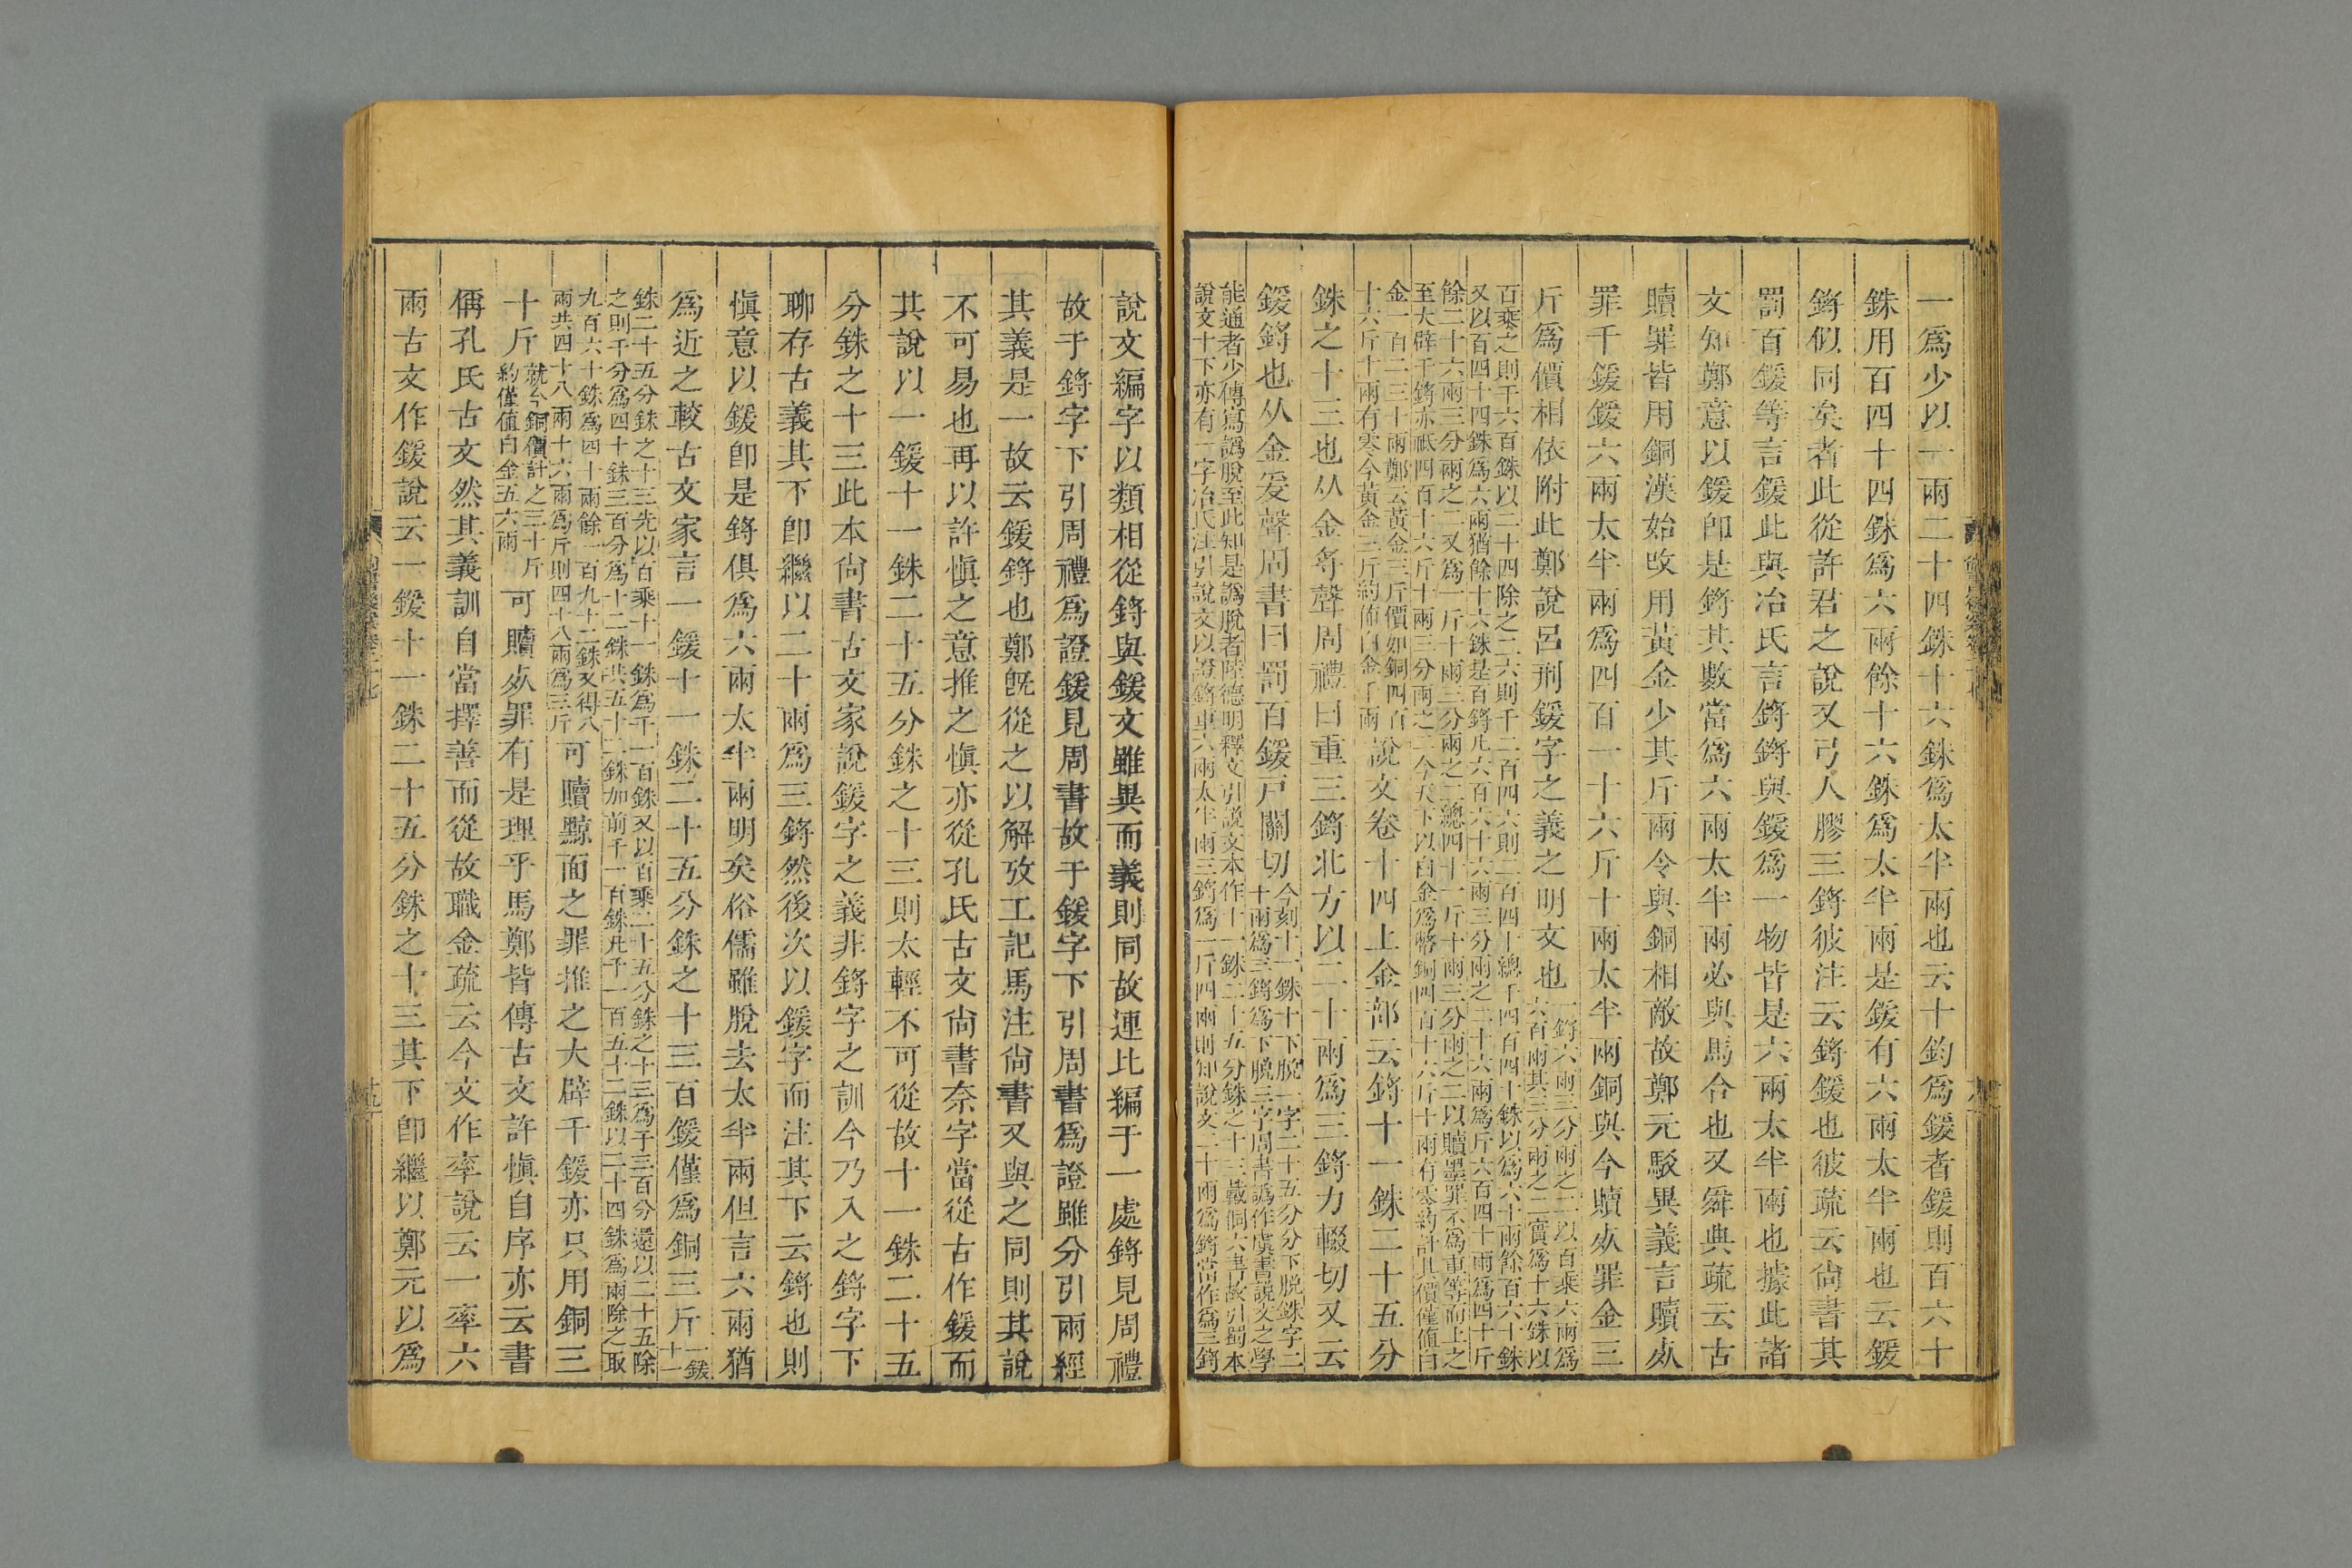 一爲少以一兩二十四銖十六銖爲太半兩也云十鈞爲鍰者鍰則百六十
銖用百四十四銖爲六兩餘十六銖爲太半兩是鍰有六兩太半兩也云鍰
鋝似同矣者此從許君之說又弓人膠三鋝彼注云鋝鍰也彼疏云尙書其
罰百鍰等言鍰此與冶氏言鋝鋝與鍰爲一物皆是六兩太半兩也據此諸
文知鄭意以鍰卽是鋝其數當爲六兩太半兩必與馬合也又舜典疏云古
贖罪皆用銅漢始改用黃金少其斤兩令與銅相敵故鄭元駁異義言贖死
罪千鍰鍰六兩太半兩爲四百一十六斤十兩太半兩銅與今贖死罪金三
斤爲價相依附此鄭說呂刑鍰字之義之明文也一鋝六兩三分兩之二以百乘六兩爲
六百兩其三分兩之二實爲十六銖以
百乘之則千六百銖以二十四除之二六則千二百四六則二百四十總千四百四十銖以爲六十兩餘百六十銖
又以百四十四銖爲六兩猶餘十六銖是百鋝凡六百六十六兩三分兩之二十六兩爲斤六百四十兩爲四十斤
餘二十六兩三分兩之二又爲一斤十兩三分兩之二總四十一斤十兩三分兩之二以贖墨罪不爲重等而上之
至大辟千鋝亦祇四百十六斤十兩三分兩之二今天下以白金爲幣銅四百十六斤十兩有零約計其價僅值白
金一百二三十兩鄭云黃金三斤價如銅四百
十六斤十兩有零今黃金三斤約値白金千兩說文卷十四上金部云鋝十一銖二十五分
銖之十三也从金寽聲周禮曰重三鋝北方以二十兩爲三鋝力輟切又云
鍰鋝也从金爰聲周書曰罰百鍰戸關切今刻十一銖十下脫一字二十五分分下脫銖字二
十兩爲三鋝爲下脫三字周書譌作虞書說文之學
能通者少傳寫譌脫至此知是譌脫者陸德明釋文引說文本作十一銖二十五分銖之十三戴侗六書故引蜀本
說文十下亦有一字冶氏注引說文以證鋝重六兩太半兩三鋝爲一斤四兩則知說文二十兩爲鋝當作爲三鋝
說文編字以類相從鋝與鍰文雖異而義則同故連比編于一處鋝見周禮
故于鋝字下引周禮爲證鍰見周書故于鍰字下引周書爲證雖分引兩經
其義是一故云鍰鋝也鄭旣從之以解攷工記馬注尙書又與之同則其說
不可易也再以許愼之意推之愼亦從孔氏古文尙書奈字當從古作鍰而
其說以一鍰十一銖二十五分銖之十三則太輕不可從故十一銖二十五
分銖之十三此本尙書古文家說鍰字之義非鋝字之訓今乃入之鋝字下
聊存古義其下卽繼以二十兩爲三鋝然後次以鍰字而注其下云鋝也則
愼意以鍰卽是鋝俱爲六兩太半兩明矣俗儒雖脫去太半兩但言六兩猶
爲近之較古文家言一鍰十一銖二十五分銖之十三百鍰僅爲銅三斤一鍰
十一
銖二十五分銖之十三先以百乘十一銖爲千一百銖又以百乘二十五分銖之十三爲千三百分還以二十五除
之則千分爲四十銖三百分爲十二銖共五十二銖加前千一百銖凡千一百五十二銖以二十四銖爲兩除之取
九百六十銖爲四十兩餘一百九十二銖又得八
兩共四十八兩十六兩爲斤則四十八兩爲三斤可贖黥面之罪推之大辟千鍰亦只用銅三
十斤就今銅價計之三十斤
約僅值白金五六兩可贖死罪有是理乎馬鄭皆傳古文許愼自序亦云書
偁孔氏古文然其義訓自當擇善而從故職金疏云今文作率說云一率六
兩古文作鍰說云一鍰十一銖二十五分銖之十三其下卽繼以鄭元以爲